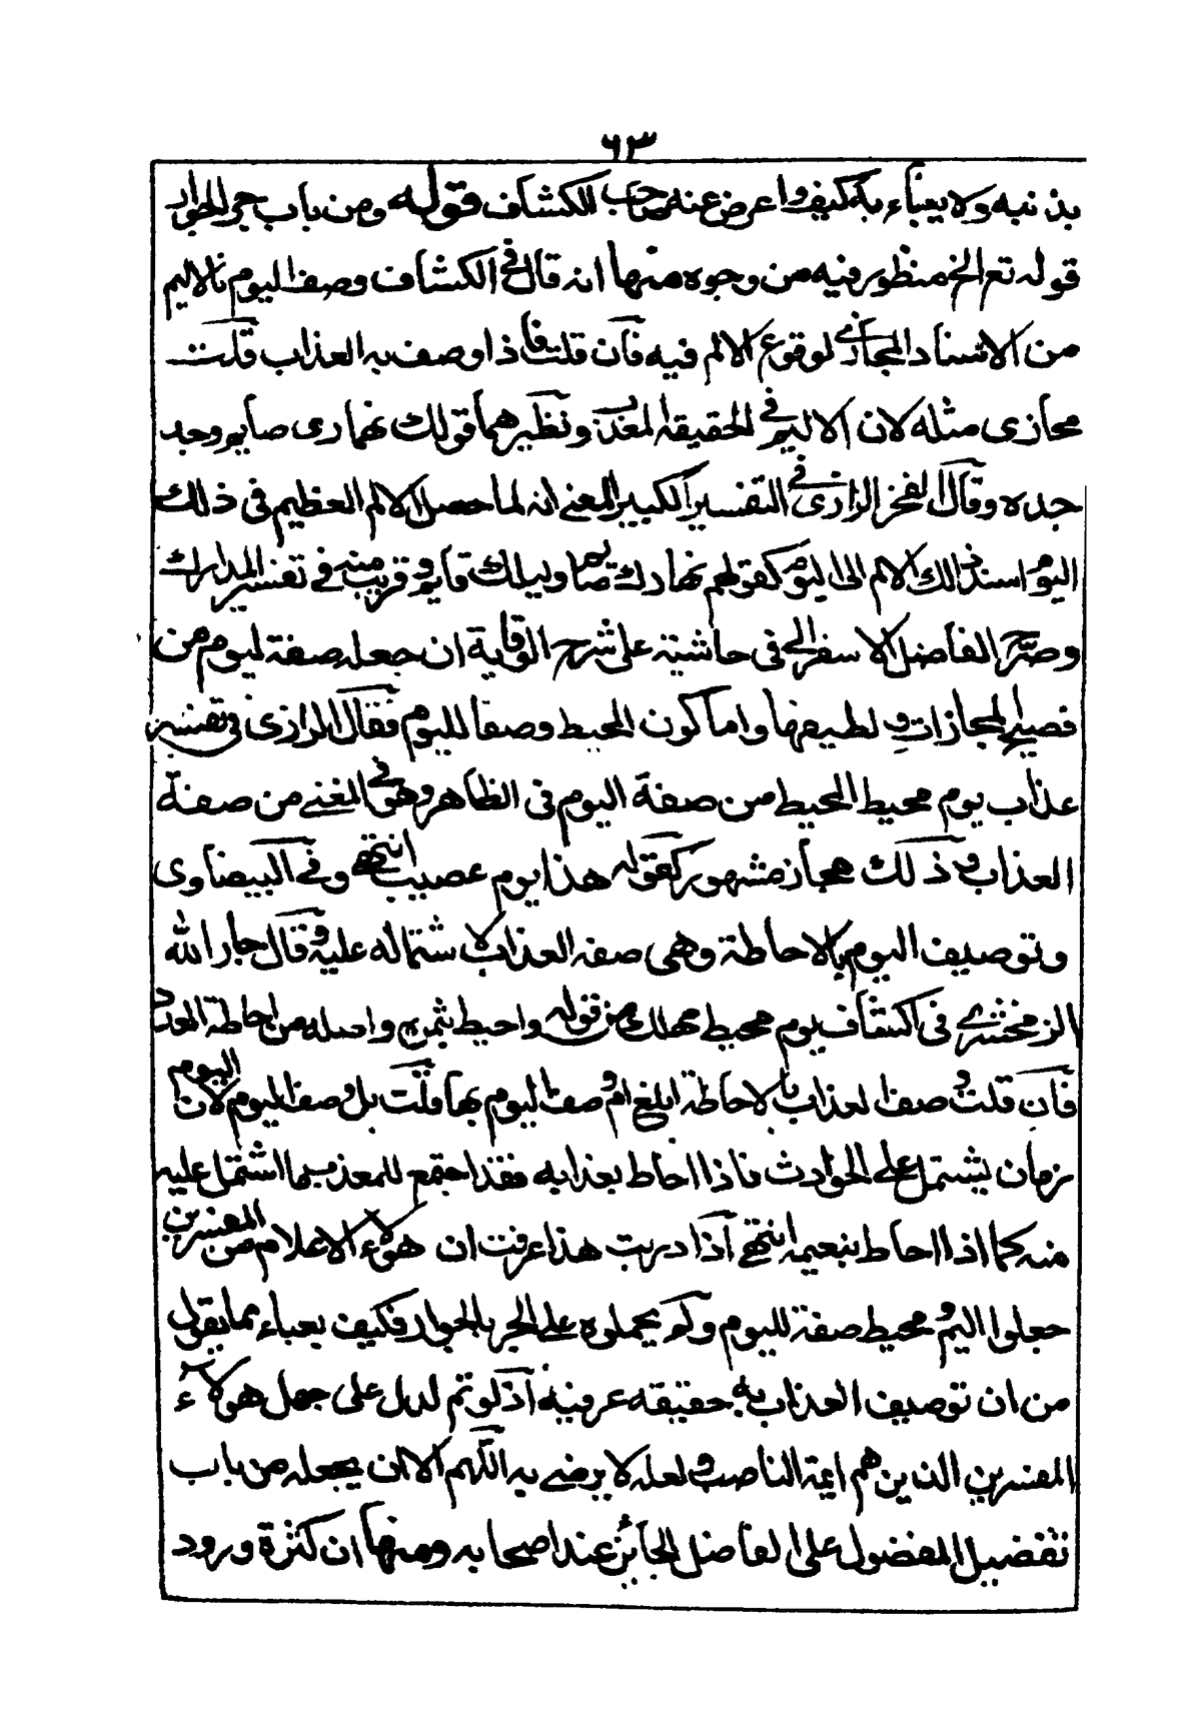 ٦٣
بذنبه ولا يعباء به كيف واعرض عنه صاحب الكشاف قوله ومن باب جر الجوار
قوله تع الخ منظور فيه من وجوه منها انه قال في الكشاف وصف اليوم بالاليم
من الاسناد المجازي لوقوع الالم فيه فان قلت فاذا وصف به العذاب قلت
مجازى مثله لان الاليم في الحقيقة المعذب ونظيرهما قولك نهارى صايم وجد
جده وقال الفخر الرازي في التفسير الكبير المعنى انه لما حصل الالم العظيم فى ذلك
اليوم اسند ذلك الالم الى اليوم كقولهم نهارك صايم وليلك قايم وقريب منه في تفسير المدارك
وصرح الفاضل الاسفرايى فى حاشيته على شرح الوقاية ان جعله صفة ليوم من
فصيح المجازات ولطيفها واما كون المحيط وصفا لليوم فقال الرازى فى تفسيره
عذاب يوم محيط المحيط من صفة اليوم فى الظاهر وهو في المعنى من صفة
العذاب وذلك مجاز مشهور كقوله هذا يوم عصيب انتهى وفي البيضاوى
وتوصيف اليوم بالاحاطة وهى صفه العذاب لاشتماله عليه وقال جار الله
الزمخشري فى كشاف يوم محيط مهلك من قوله واحيط بثمره واصله من احاطة العدو
فان قلت وصف العذاب بالاحاطة ابلغ ام وصف اليوم بها قلت بل وصف اليوم لان اليوم
زمان يشتمل على الحوادث فاذا احاط بعذابه فقد اجتمع للمعذب ما اشتمل عليه
منه كما اذا احاط بنعيمه انتهى اذا دريت هذا عرفت ان هولاء الاعلام من المفسرين
جعلوا اليم ومحيط صفة لليوم ولم يحملوه على الجر بالجوار فكيف يعباء بما يقول
من ان توصيف العذاب به حقيقه عرفية اذ لو تم لدل على جهل هولاء
المفسرين الذين هم ايمة الناصب ولعله لا يرضى به اللهم الا ان يجعله من باب
تفضيل المفضول على الفاضل الجائز عند اصحابه ومنها ان كثرة ورود